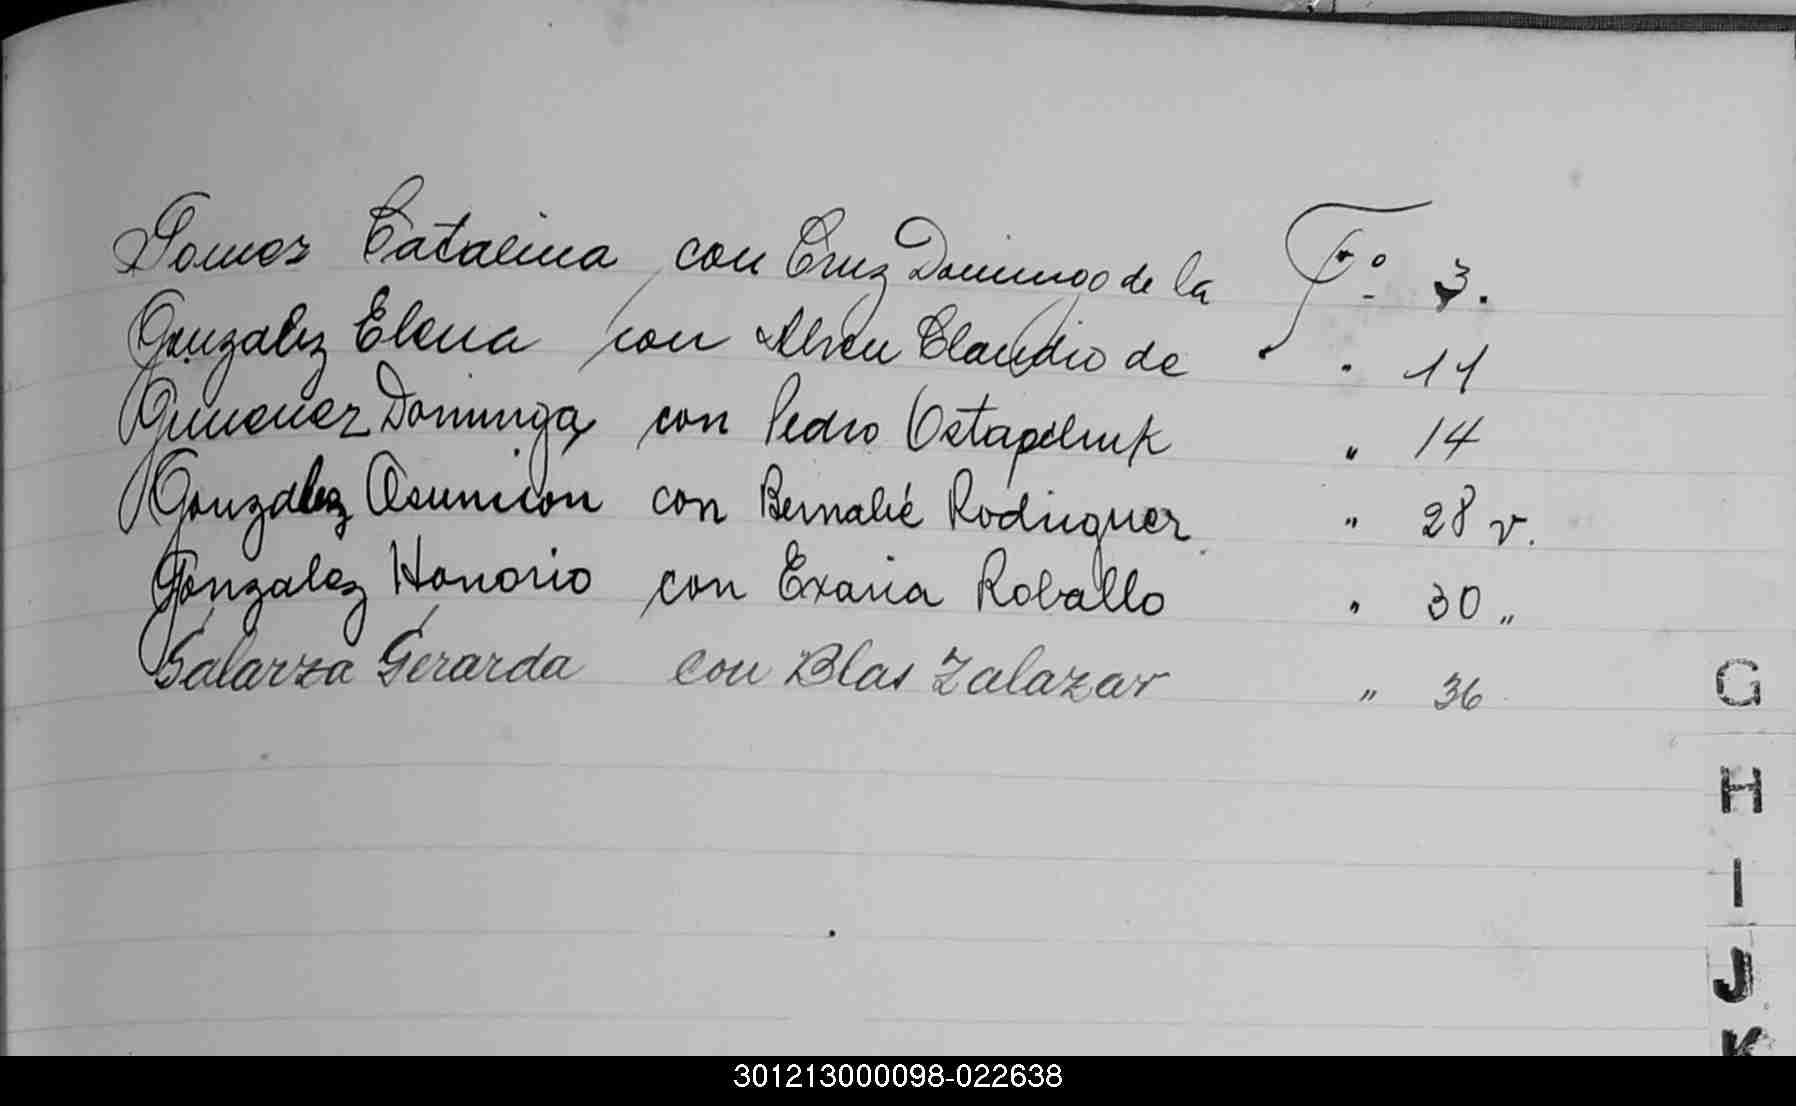 Gomez Catalina con Cruz Domingo de la Fº 3.
Gonzalez Elena con Abreu Claudio de " 11
Gimenez Dominga con Pedro Ostapchuk " 14
Gonzalez Asuncion con Bernabé Rodriguez " 28 v.
Gonzalez Honorio con Exaria Roballo " 30 "
Galarza Gerarda con Blas Zalazar " 36
G
H
I
J
K
301213000098-022638